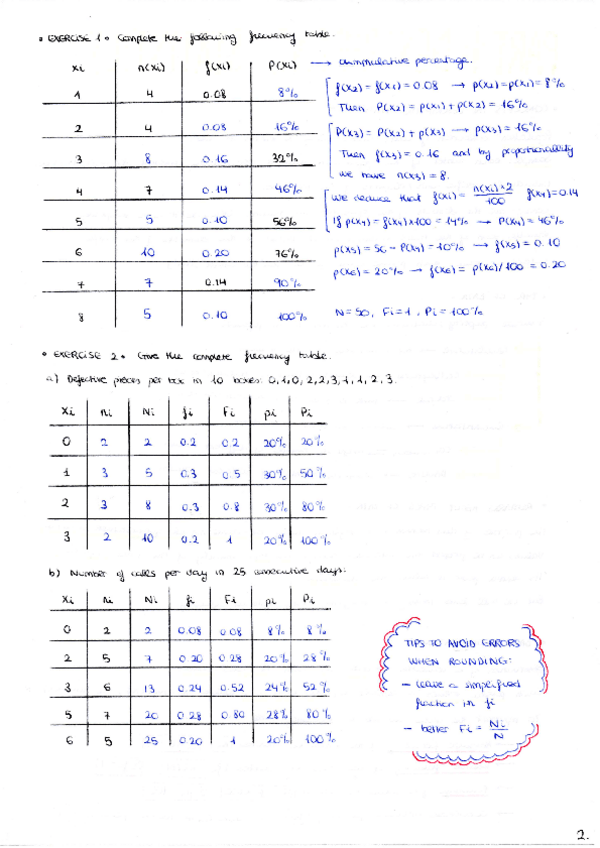 • EXERCISE 1 • Complete the following frequency table.
xi n(xi) f(xi) P(xi) → cummulative percentage.
1 4 0.08 8%
2 4 0.08 16%
3 8 0.16 32%
4 7 0.14 46%
5 5 0.10 56%
6 10 0.20 76%
7 7 0.14 90%
8 5 0.10 100%
f(x2) = f(x1) = 0.08 → p(x2) = p(x1) = 8%
Then P(x2) = p(x1) + p(x2) = 16%
P(x3) = P(x2) + p(x3) → p(x3) = 16%
Then f(x3) = 0.16 and by proportionality
we have n(x3) = 8.
We deduce that f(xi) = n(xi)×2/100 f(x4) = 0.14
If p(x4) = f(x4)×100 = 14% → P(x4) = 46%
p(x5) = 56 - P(x4) = 10% → f(x5) = 0.10
p(x6) = 20% → f(x6) = p(x6)/100 = 0.20
N = 50, Fi = 1, Pi = 100%
• EXERCISE 2 • Give the complete frequency table.
a) Defective pieces per box in 10 boxes: 0, 1, 0, 2, 2, 3, 1, 1, 2, 3.
xi ni Ni fi Fi pi Pi
0 2 2 0.2 0.2 20% 20%
1 3 5 0.3 0.5 30% 50%
2 3 8 0.3 0.8 30% 80%
3 2 10 0.2 1 20% 100%
b) Number of calls per day in 25 consecutive days:
xi ni Ni fi Fi pi Pi
0 2 2 0.08 0.08 8% 8%
2 5 7 0.20 0.28 20% 28%
3 6 13 0.24 0.52 24% 52%
5 7 20 0.28 0.80 28% 80%
6 5 25 0.20 1 20% 100%
TIPS TO AVOID ERRORS
WHEN ROUNDING:
- leave a simplified
fraction in fi
- better Fi = Ni/N
2.